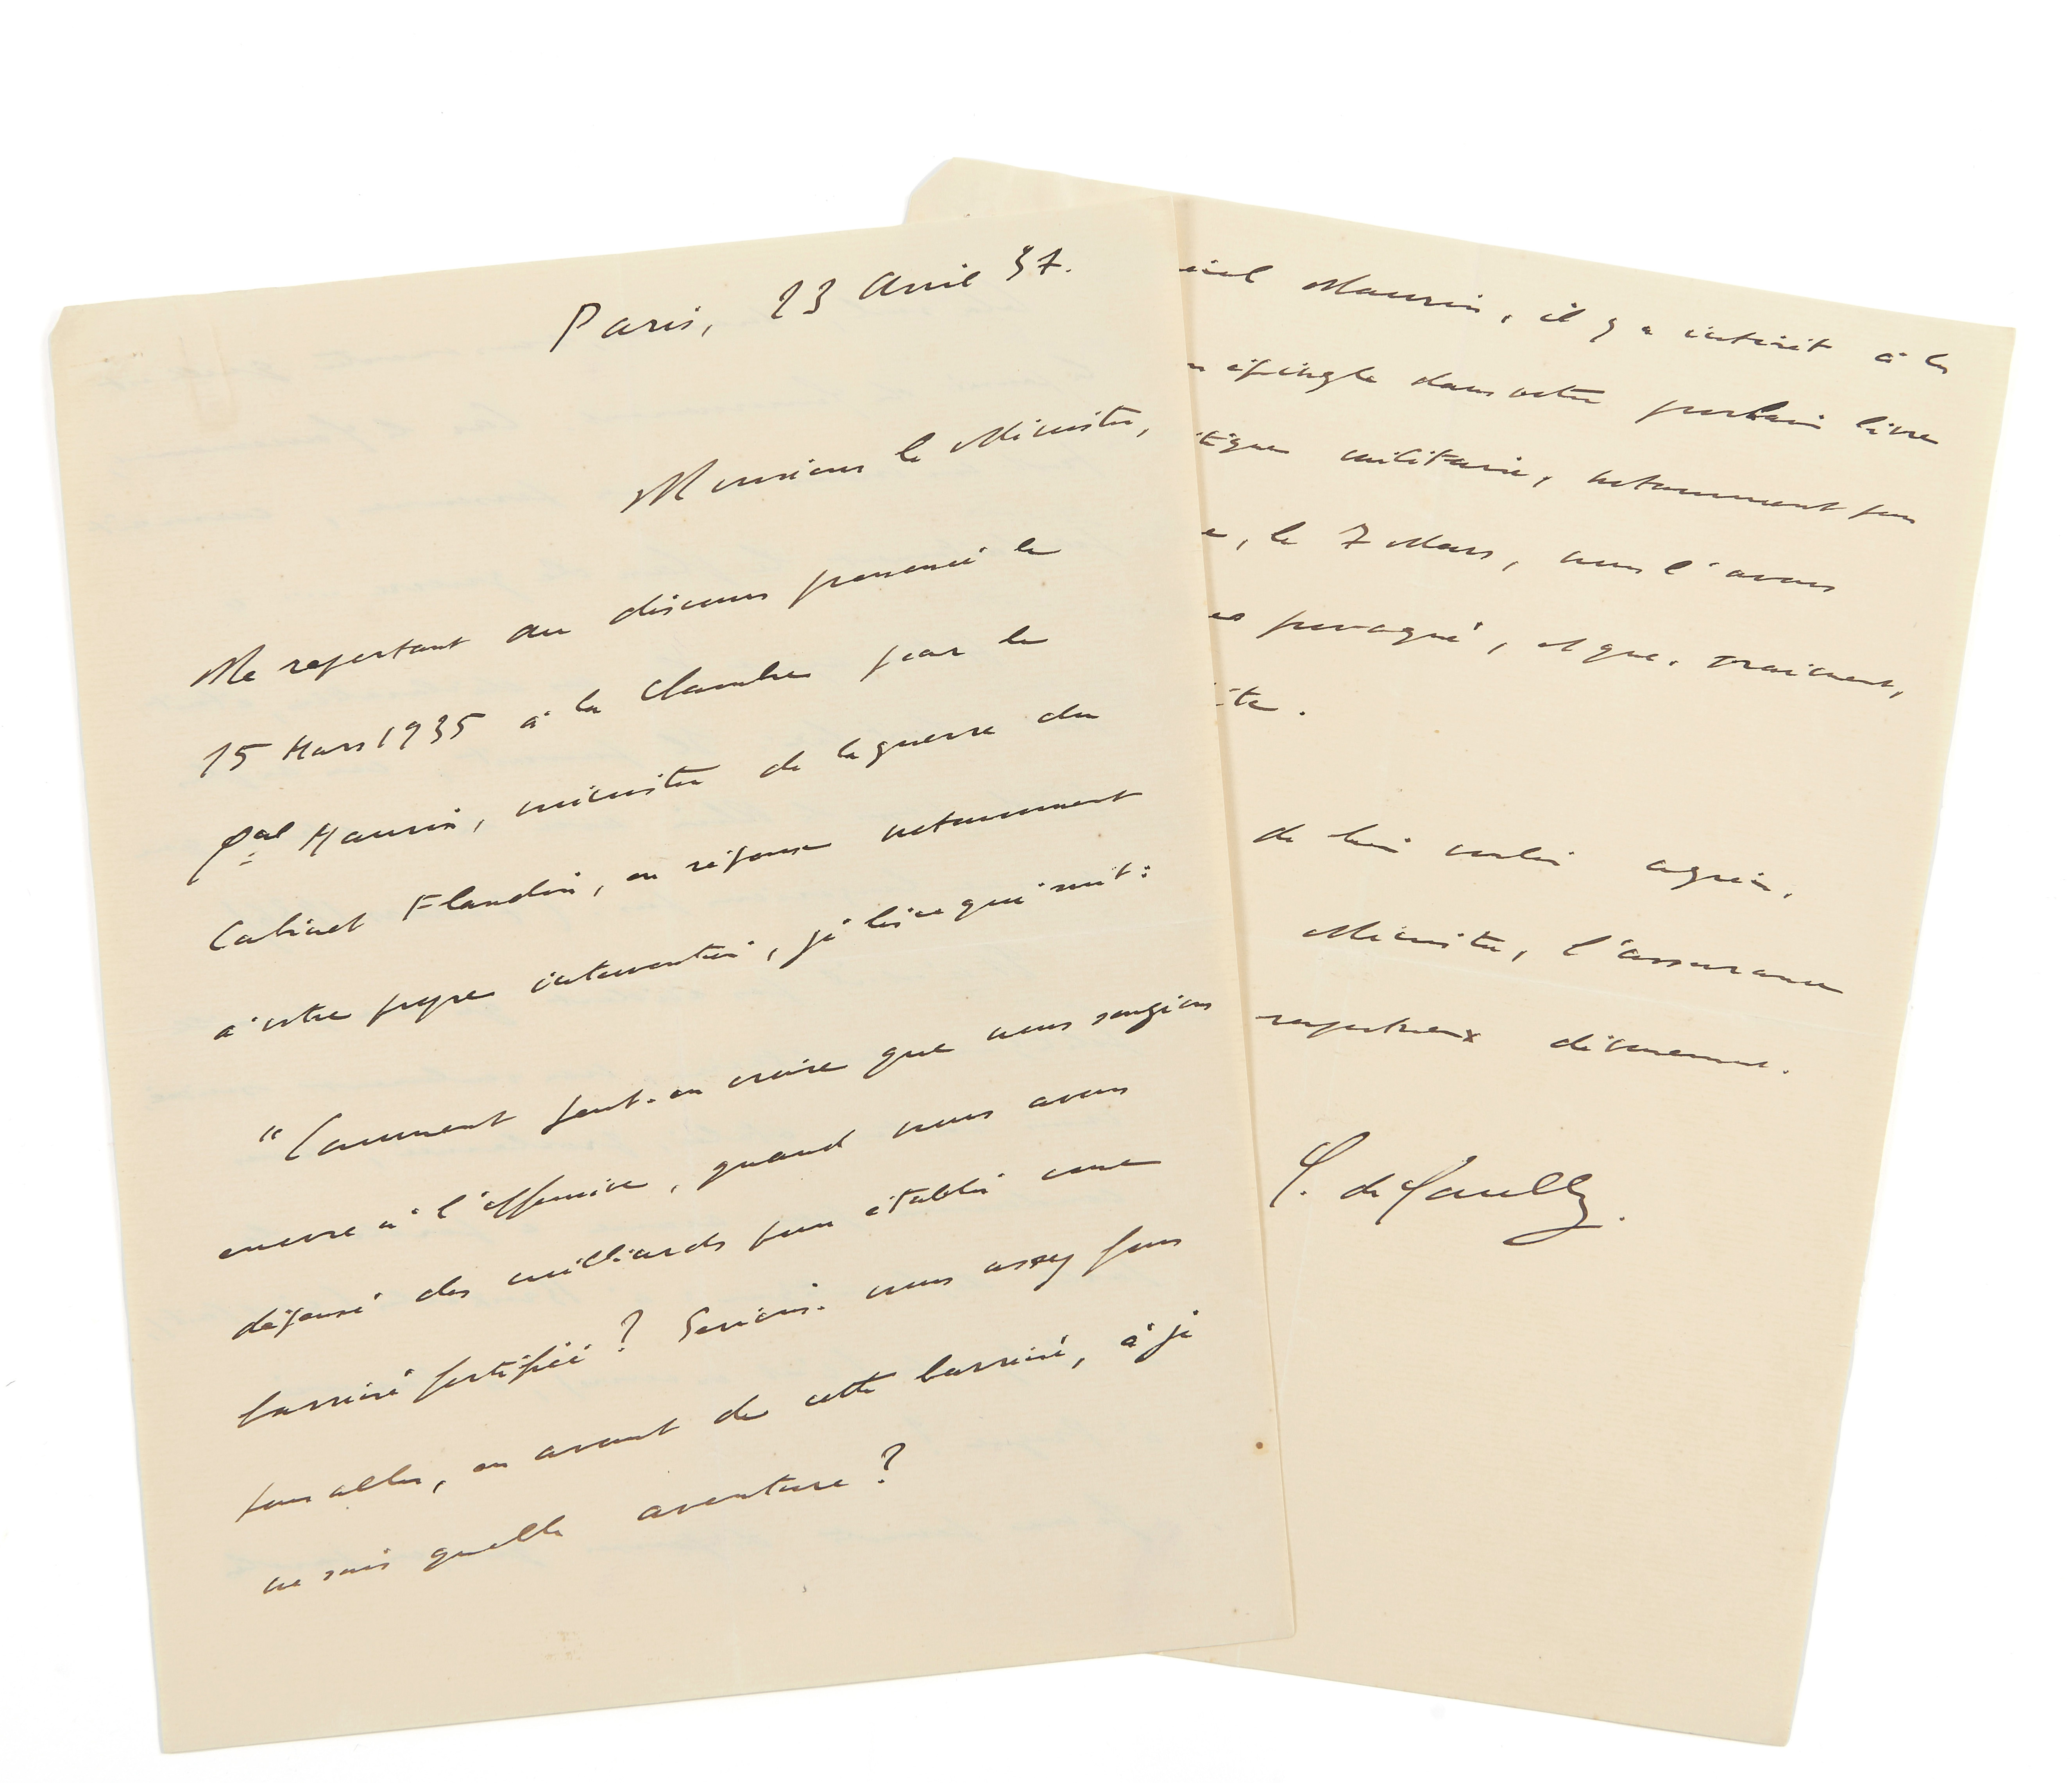 Paris, 23 Avril 37.
Monsieur le Ministre,
Me reportant au discours prononcé le
15 Mars 1935 à la Chambre par le
Gal Maurin, ministre de la guerre du
Cabinet Flandin, en réponse notamment
à votre propre intervention, j'y lis ce qui suit :
"Comment peut-on croire que nous songions
encore à l'offensive, quand nous avons
dépensé des milliards pour établir une
barrière fortifiée ? Serions-nous assez fous
pour aller, en avant de cette barrière, à je
ne sais quelle aventure ?
Maurin, il y a intérêt à le
épingle dans votre prochain livre
militaire, notamment pour
, le 7 Mars, nous l'avons
provoqué, et que, vraiment,
de bien vouloir agréer,
Ministre, l'assurance
respectueux dévouement.
C. de Gaulle.